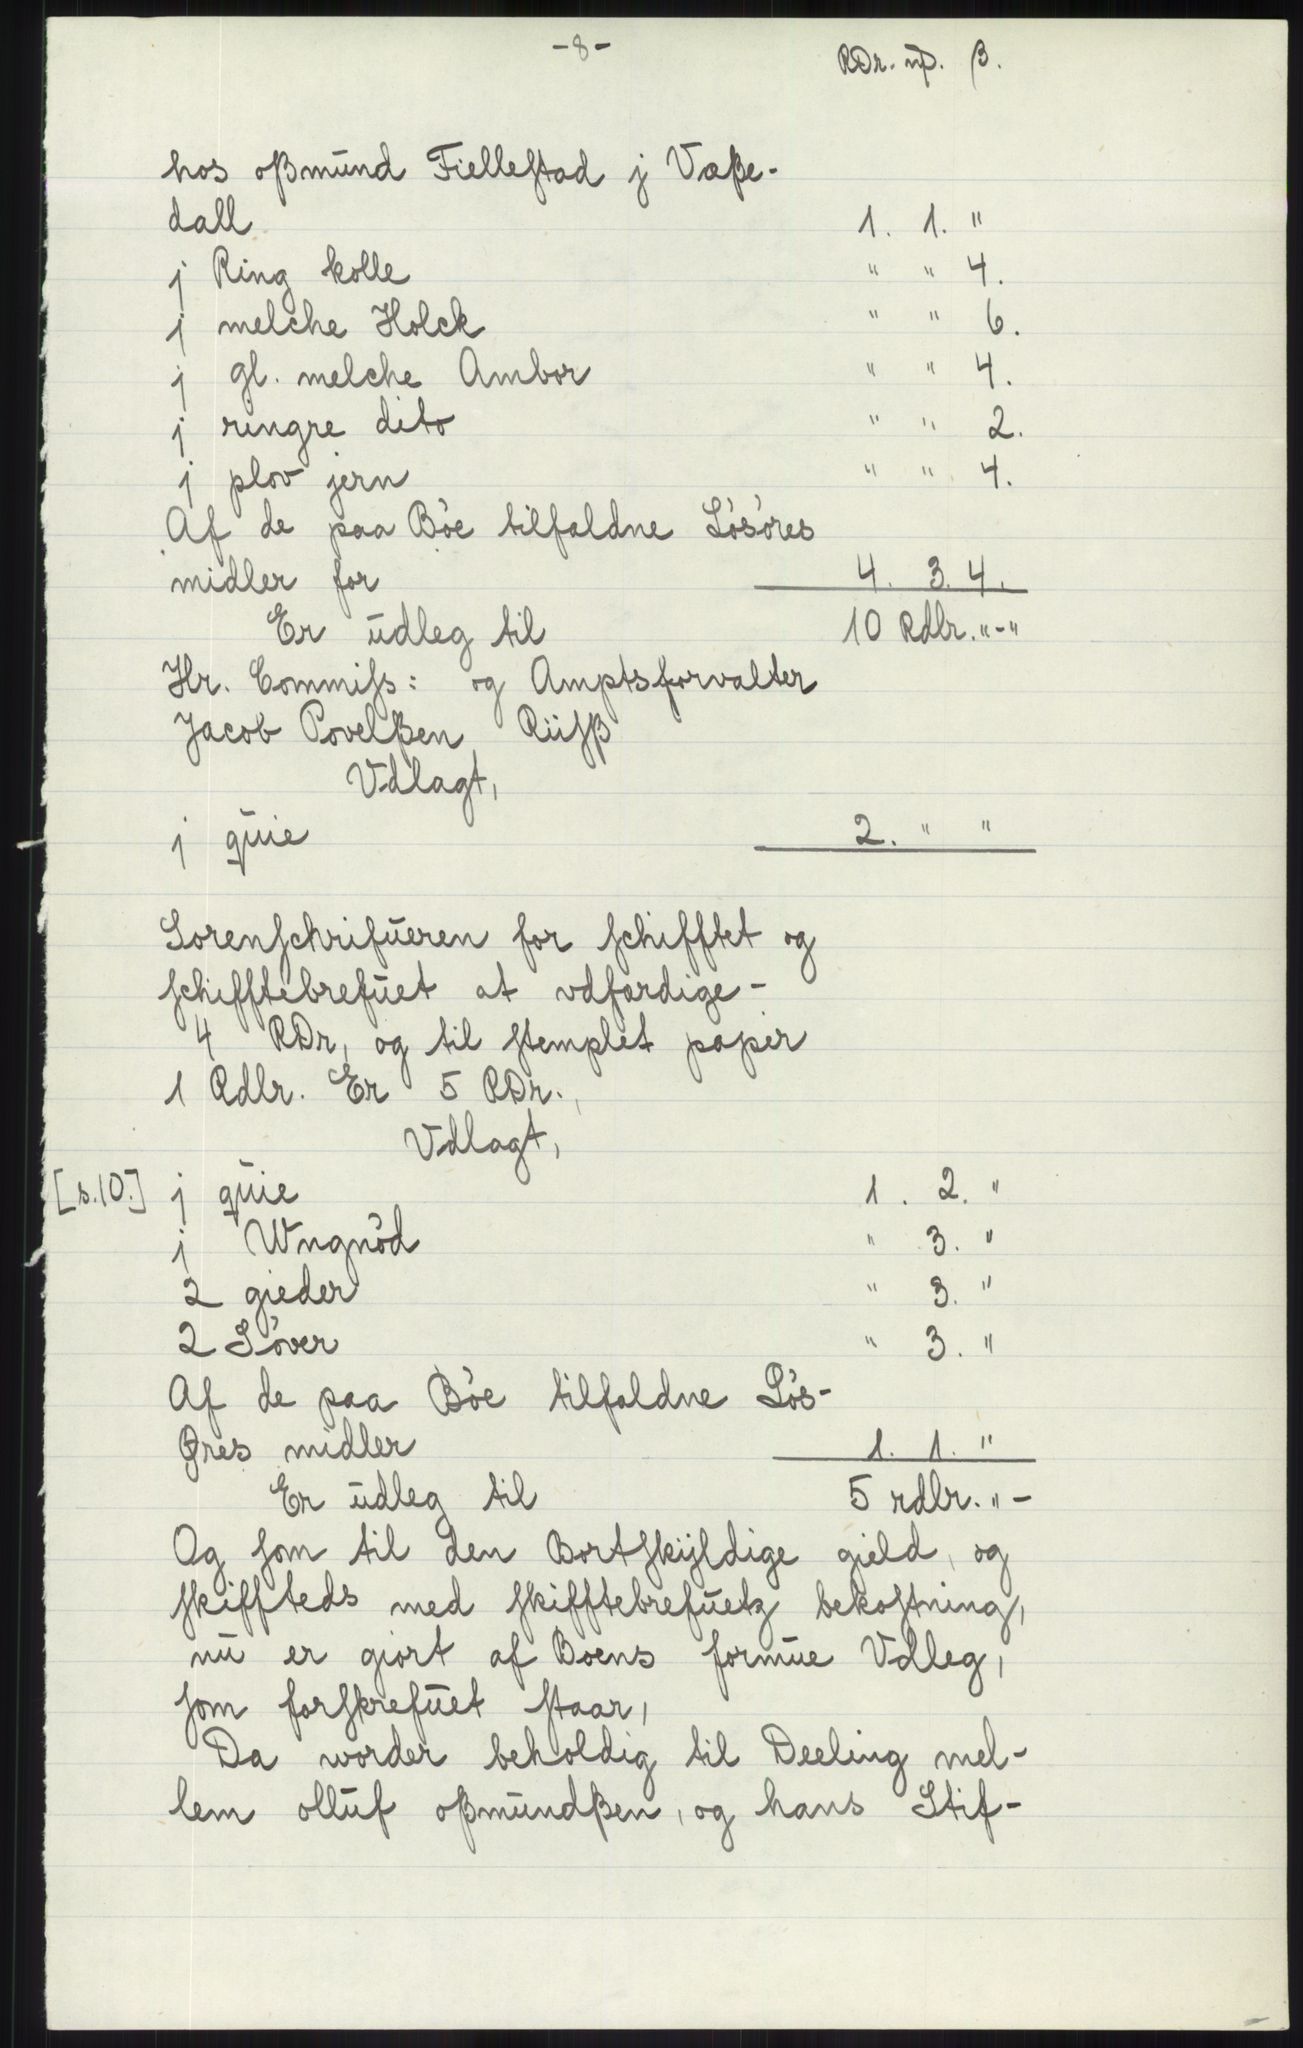 -8-
RDr. mp. β.
hos oßmúnd Fiellestad j Væße-
dall 1. 1. "
j Ring kolle " " 4.
j melche Holck " " 6.
j gl. melche Ambor " " 4.
j ringre dito " " 2.
j plov jern " " 4.
Af de paa Bòe tilfaldne Lòsòres
midler for 4. 3. 4.
Er údleg til 10 Rdlr. "-"
Hr. Commiſs: og Amptsforvalter
Jacob Povelßen Riiſß
Vdlagt,
j qúie 2. " "
Sorenſchrifúeren for ſchifftet og
ſchifftebrefúet at vdfærdige-
4 RDr, og til ſtemplet papir
1 Rdlr. Er 5 RDr.,
Vdlagt,
[s.10.] j qúie 1. 2. "
j Wngnòd " 3. "
2 gieder " 3. "
2 Sòver " 3. "
Af de paa Bòe tilfaldne Lòs-
Øres midler 1. 1. "
Er údleg til 5 rdlr. " -
Og ſom til den Bortſkÿldige gield, og
ſkiffteds med ſkifftebrefúetz bekoſtning,
nú er giort af Boens formúe Vdleg,
ſom forſkrefúet ſtaar,
Da worder beholdig til Deeling mel-
lem ollúf oßmúndßen, og hans Stif-